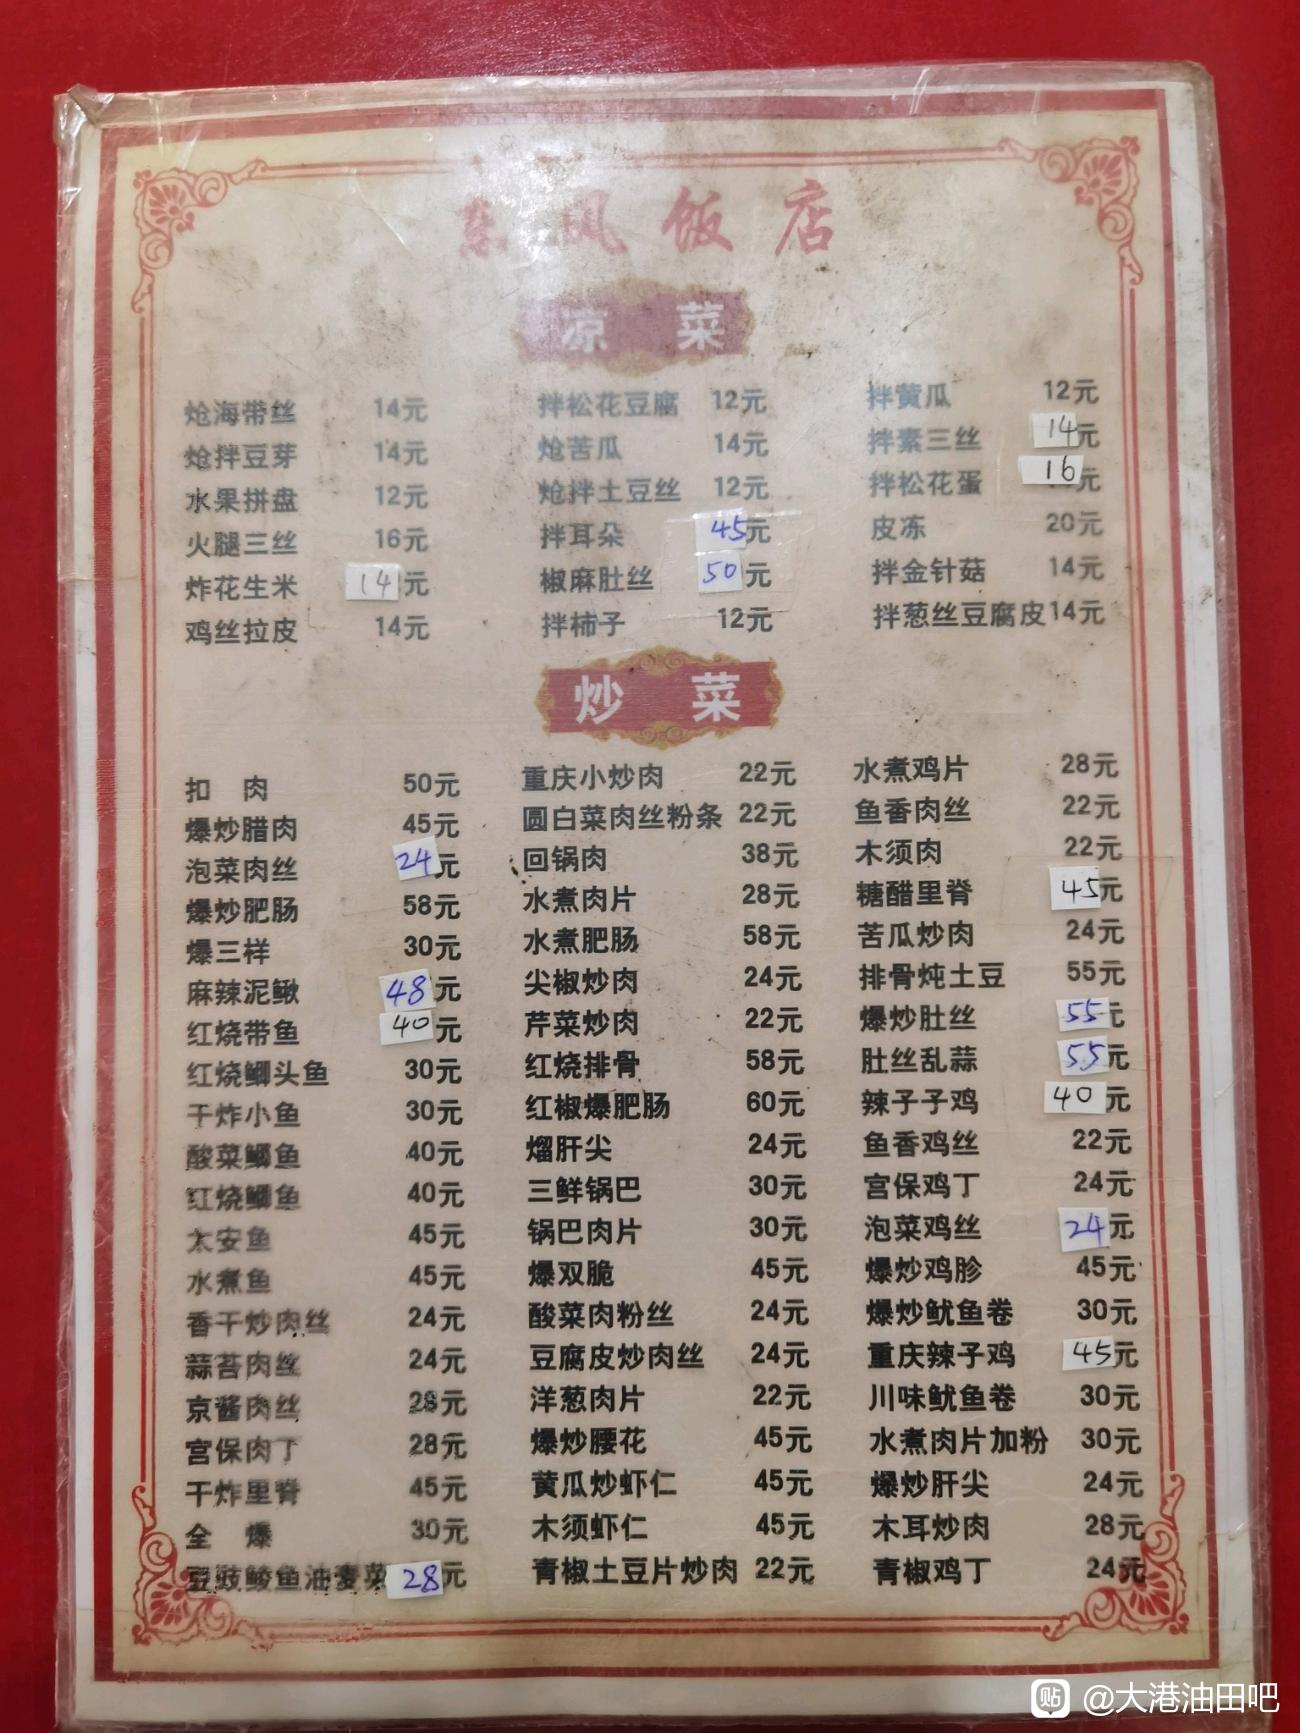 东风饭店
凉 菜
炝海带丝 14元 拌松花豆腐 12元 拌黄瓜 12元
炝拌豆芽 14元 炝苦瓜 14元 拌素三丝 14元
水果拼盘 12元 炝拌土豆丝 12元 拌松花蛋 16元
火腿三丝 16元 拌耳朵 45元 皮冻 20元
炸花生米 14元 椒麻肚丝 50元 拌金针菇 14元
鸡丝拉皮 14元 拌柿子 12元 拌葱丝豆腐皮 14元
炒 菜
扣 肉 50元 重庆小炒肉 22元 水煮鸡片 28元
爆炒腊肉 45元 圆白菜肉丝粉条 22元 鱼香肉丝 22元
泡菜肉丝 24元 回锅肉 38元 木须肉 22元
爆炒肥肠 58元 水煮肉片 28元 糖醋里脊 45元
爆三样 30元 水煮肥肠 58元 苦瓜炒肉 24元
麻辣泥鳅 48元 尖椒炒肉 24元 排骨炖土豆 55元
红烧带鱼 40元 芹菜炒肉 22元 爆炒肚丝 55元
红烧鲫头鱼 30元 红烧排骨 58元 肚丝乱蒜 55元
干炸小鱼 30元 红椒爆肥肠 60元 辣子子鸡 40元
酸菜鲫鱼 40元 熘肝尖 24元 鱼香鸡丝 22元
红烧鲫鱼 40元 三鲜锅巴 30元 宫保鸡丁 24元
太安鱼 45元 锅巴肉片 30元 泡菜鸡丝 24元
水煮鱼 45元 爆双脆 45元 爆炒鸡胗 45元
香干炒肉丝 24元 酸菜肉粉丝 24元 爆炒鱿鱼卷 30元
蒜苔肉丝 24元 豆腐皮炒肉丝 24元 重庆辣子鸡 45元
京酱肉丝 28元 洋葱肉片 22元 川味鱿鱼卷 30元
宫保肉丁 28元 爆炒腰花 45元 水煮肉片加粉 30元
干炸里脊 45元 黄瓜炒虾仁 45元 爆炒肝尖 24元
全 爆 30元 木须虾仁 45元 木耳炒肉 28元
豆豉鲮鱼油麦菜 28元 青椒土豆片炒肉 22元 青椒鸡丁 24元
贴 @大港油田吧